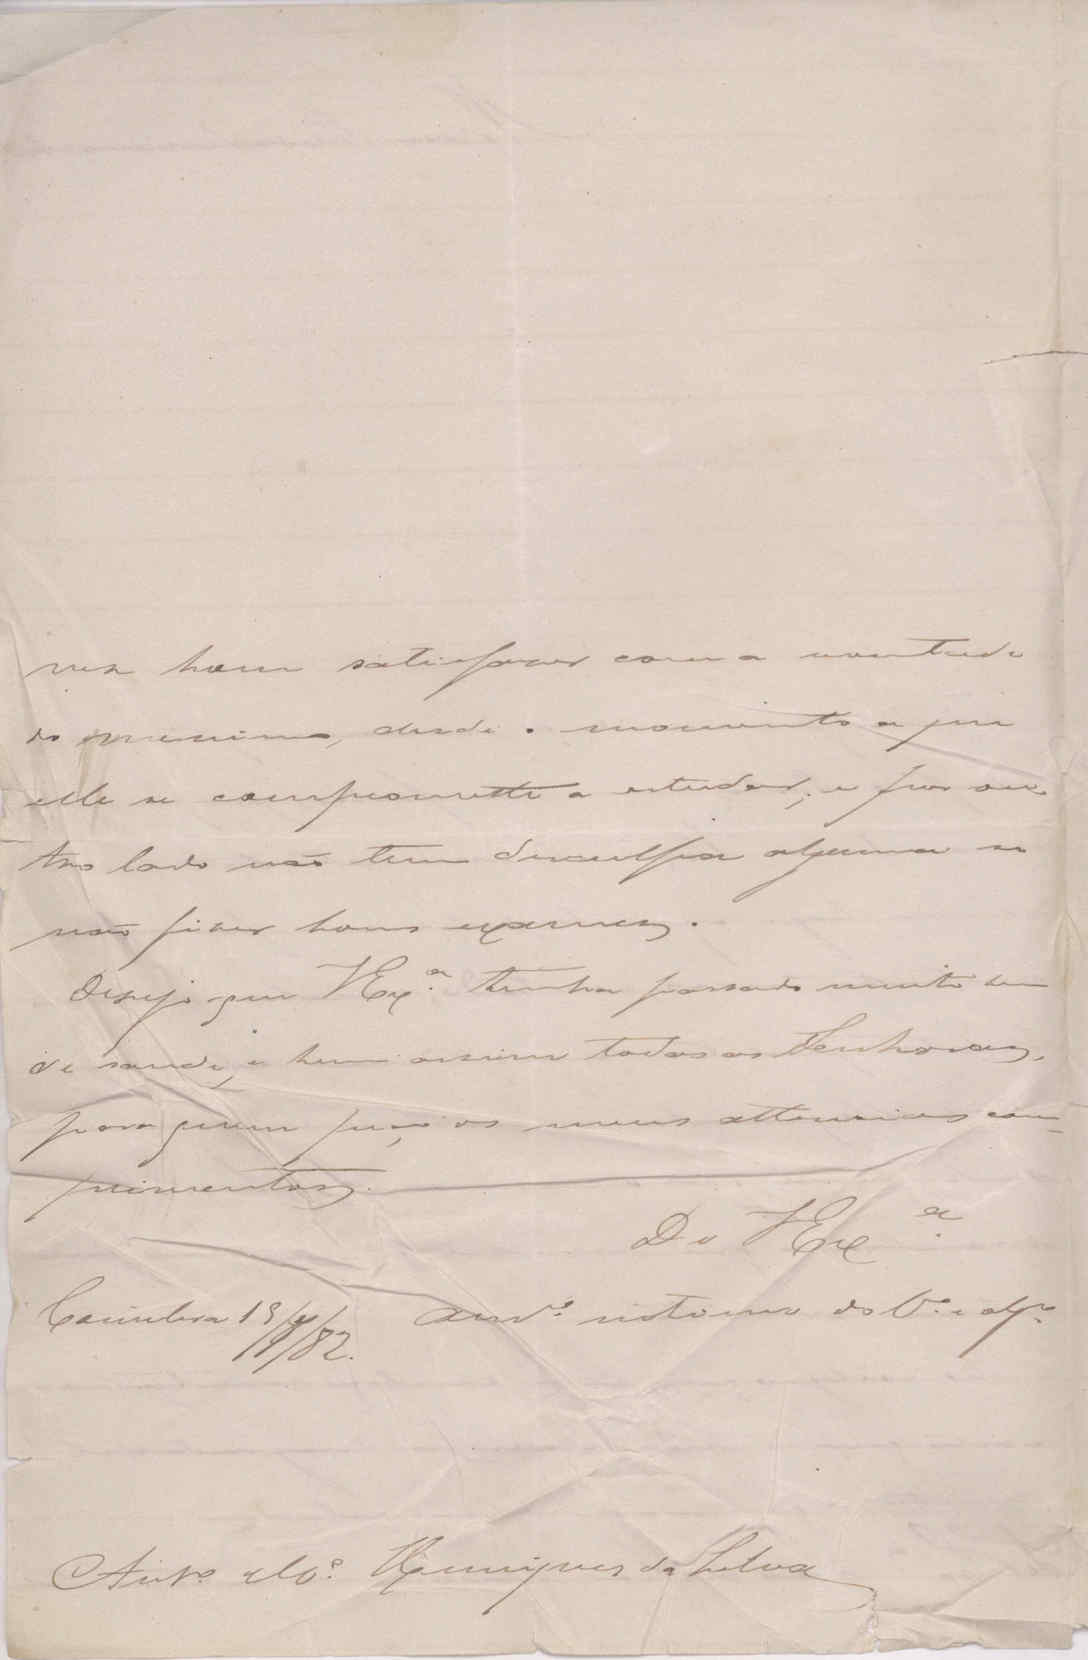 vez bom satisfazer com a vontade
do menino, desde o momento a que
elle se compromette a estudar; e por ou-
tro lado não tem desculpa alguma se
não fizer bons exames.
Desejo que VExª. tenha passado muito bem
de saude, e bem assim todas as Senhoras,
para quem peço os meus attenciosos com-
primentos.
De VExª.
Coimbra 19/4/82.
do Vº. e
Antº. Henriques da Silva